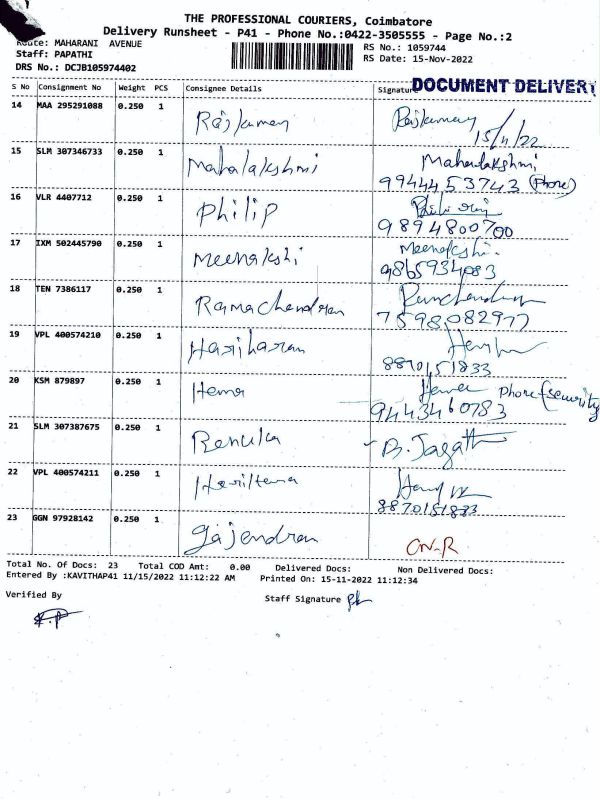 THE PROFESSIONAL COURIERS, Coimbatore
Delivery Runsheet - P41 - Phone No.:0422-3505555 - Page No.:2
Route: MAHARANI AVENUE
RS No.: 1059744
Staff: PAPATHI
RS Date: 15-Nov-2022
DRS No.: DCJB105974402
S No Consignment No Weight PCS Consignee Details Signatur DOCUMENT DELIVERY
14 MAA 295291088 0.250 1 Rajkumar Rajkumar 15/11/22
15 SLM 307346733 0.250 1 Mahalakshmi Mahalakshmi
9944453743 (Phone)
16 VLR 4407712 0.250 1 Philip
9894800700
17 IXM 502445790 0.250 1 Meenakshi Meenakshi.
9865934083
18 TEN 7386117 0.250 1 Ramachendran
7598082977
19 VPL 400574210 0.250 1 Hariharan
8870151833
20 KSM 879897 0.250 1 Hema Hema phone (security
9443460783
21 SLM 307387675 0.250 1 Renuka B. Jagath
22 VPL 400574211
0.250 1
8870151833
23 GGN 97928142 0.250 1 Gajendran CN-R
Total No. Of Docs: 23 Total COD Amt: 0.00 Delivered Docs: Non Delivered Docs:
Entered By :KAVITHAP41 11/15/2022 11:12:22 AM Printed On: 15-11-2022 11:12:34
Verified By
Staff Signature